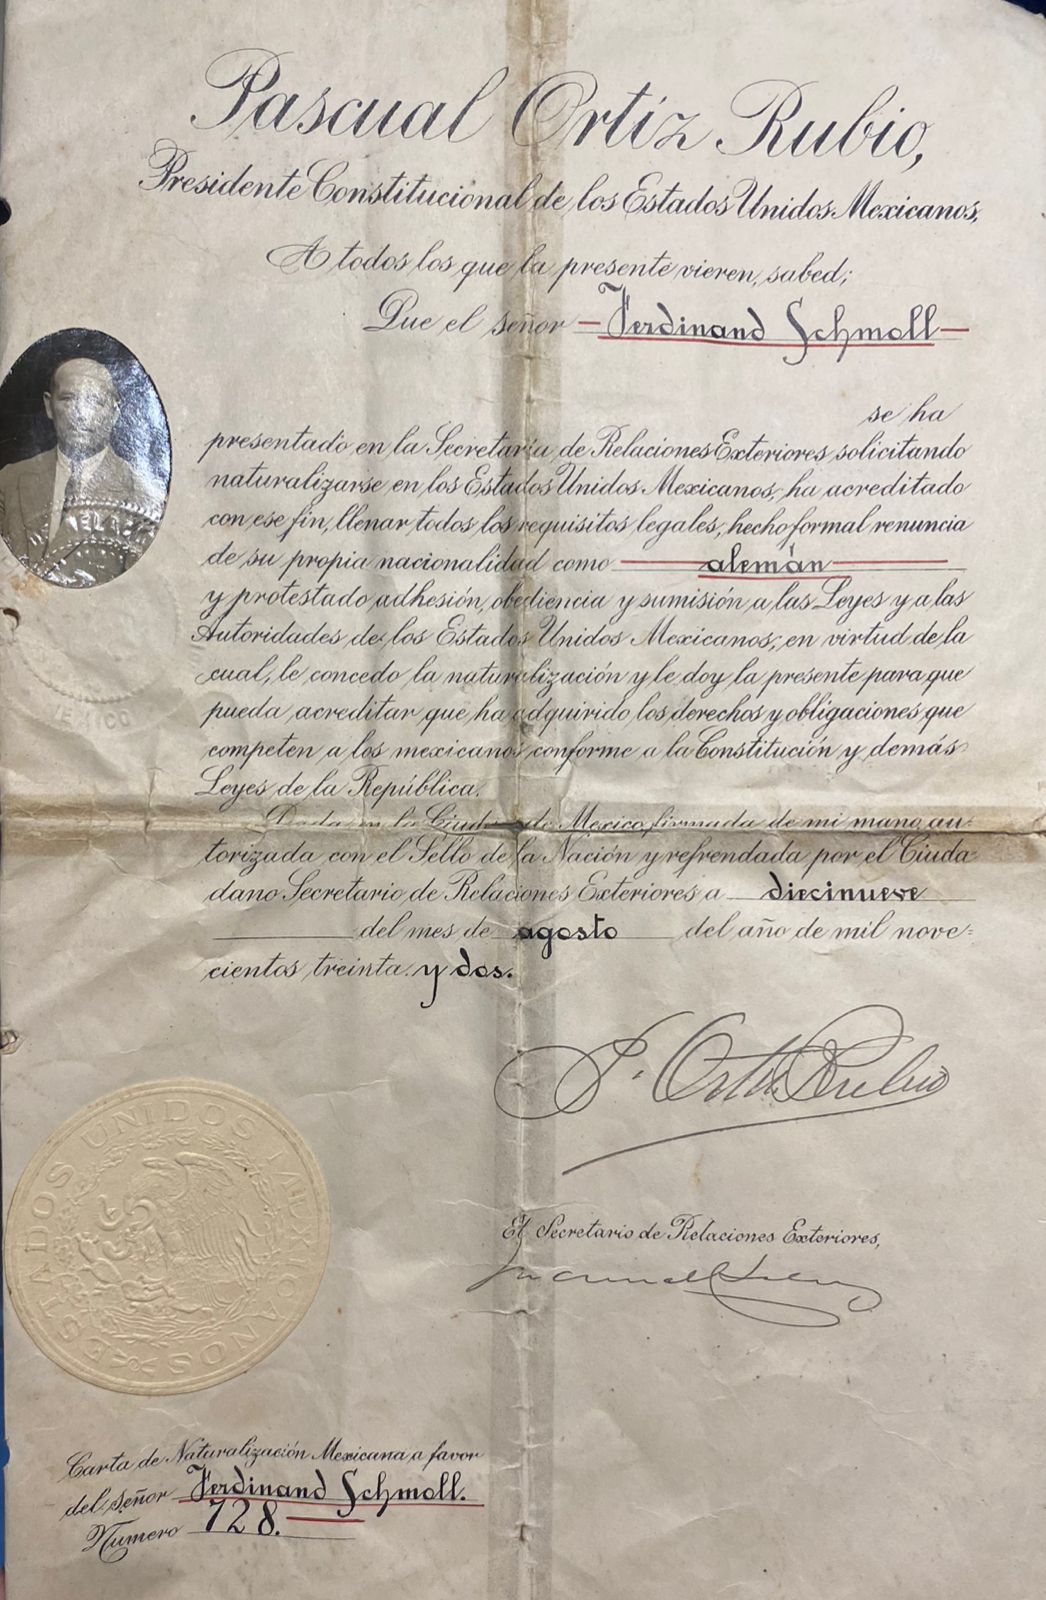 Pascual Ortiz Rubio,
Presidente Constitucional de los Estados Unidos Mexicanos,
A todos los que la presente vieren, sabed;
Que el señor — Ferdinand Schmoll —
se ha
presentado en la Secretaría de Relaciones Exteriores solicitando
naturalizarse en los Estados Unidos Mexicanos, ha acreditado
con ese fin, llenar todos los requisitos legales, hecho formal renuncia
de su propia nacionalidad como — alemán —
y protestado adhesión, obediencia y sumisión a las Leyes y a las
Autoridades de los Estados Unidos Mexicanos; en virtud de la
cual, le concedo la naturalización y le doy la presente para que
pueda acreditar que ha adquirido los derechos y obligaciones que
competen a los mexicanos conforme a la Constitución y demás
Leyes de la República.
Dada en la Ciudad de Mexico, firmada de mi mano, au-
torizada con el Sello de la Nación y refrendada por el Ciuda
dano Secretario de Relaciones Exteriores a diecinueve
del mes de agosto del año de mil nove=
cientos treinta y dos.
P. Ortiz Rubio
El Secretario de Relaciones Exteriores,
ESTADOS UNIDOS MEXICANOS
MEXICO
Carta de Naturalización Mexicana a favor
del señor Ferdinand Schmoll.
Numero 728.